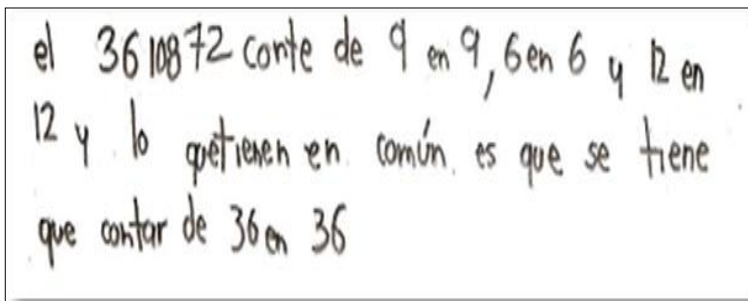 el 36 108 72 conte de 9 en 9, 6 en 6 y 12 en
12 y lo que tienen en común es que se tiene
que contar de 36 en 36